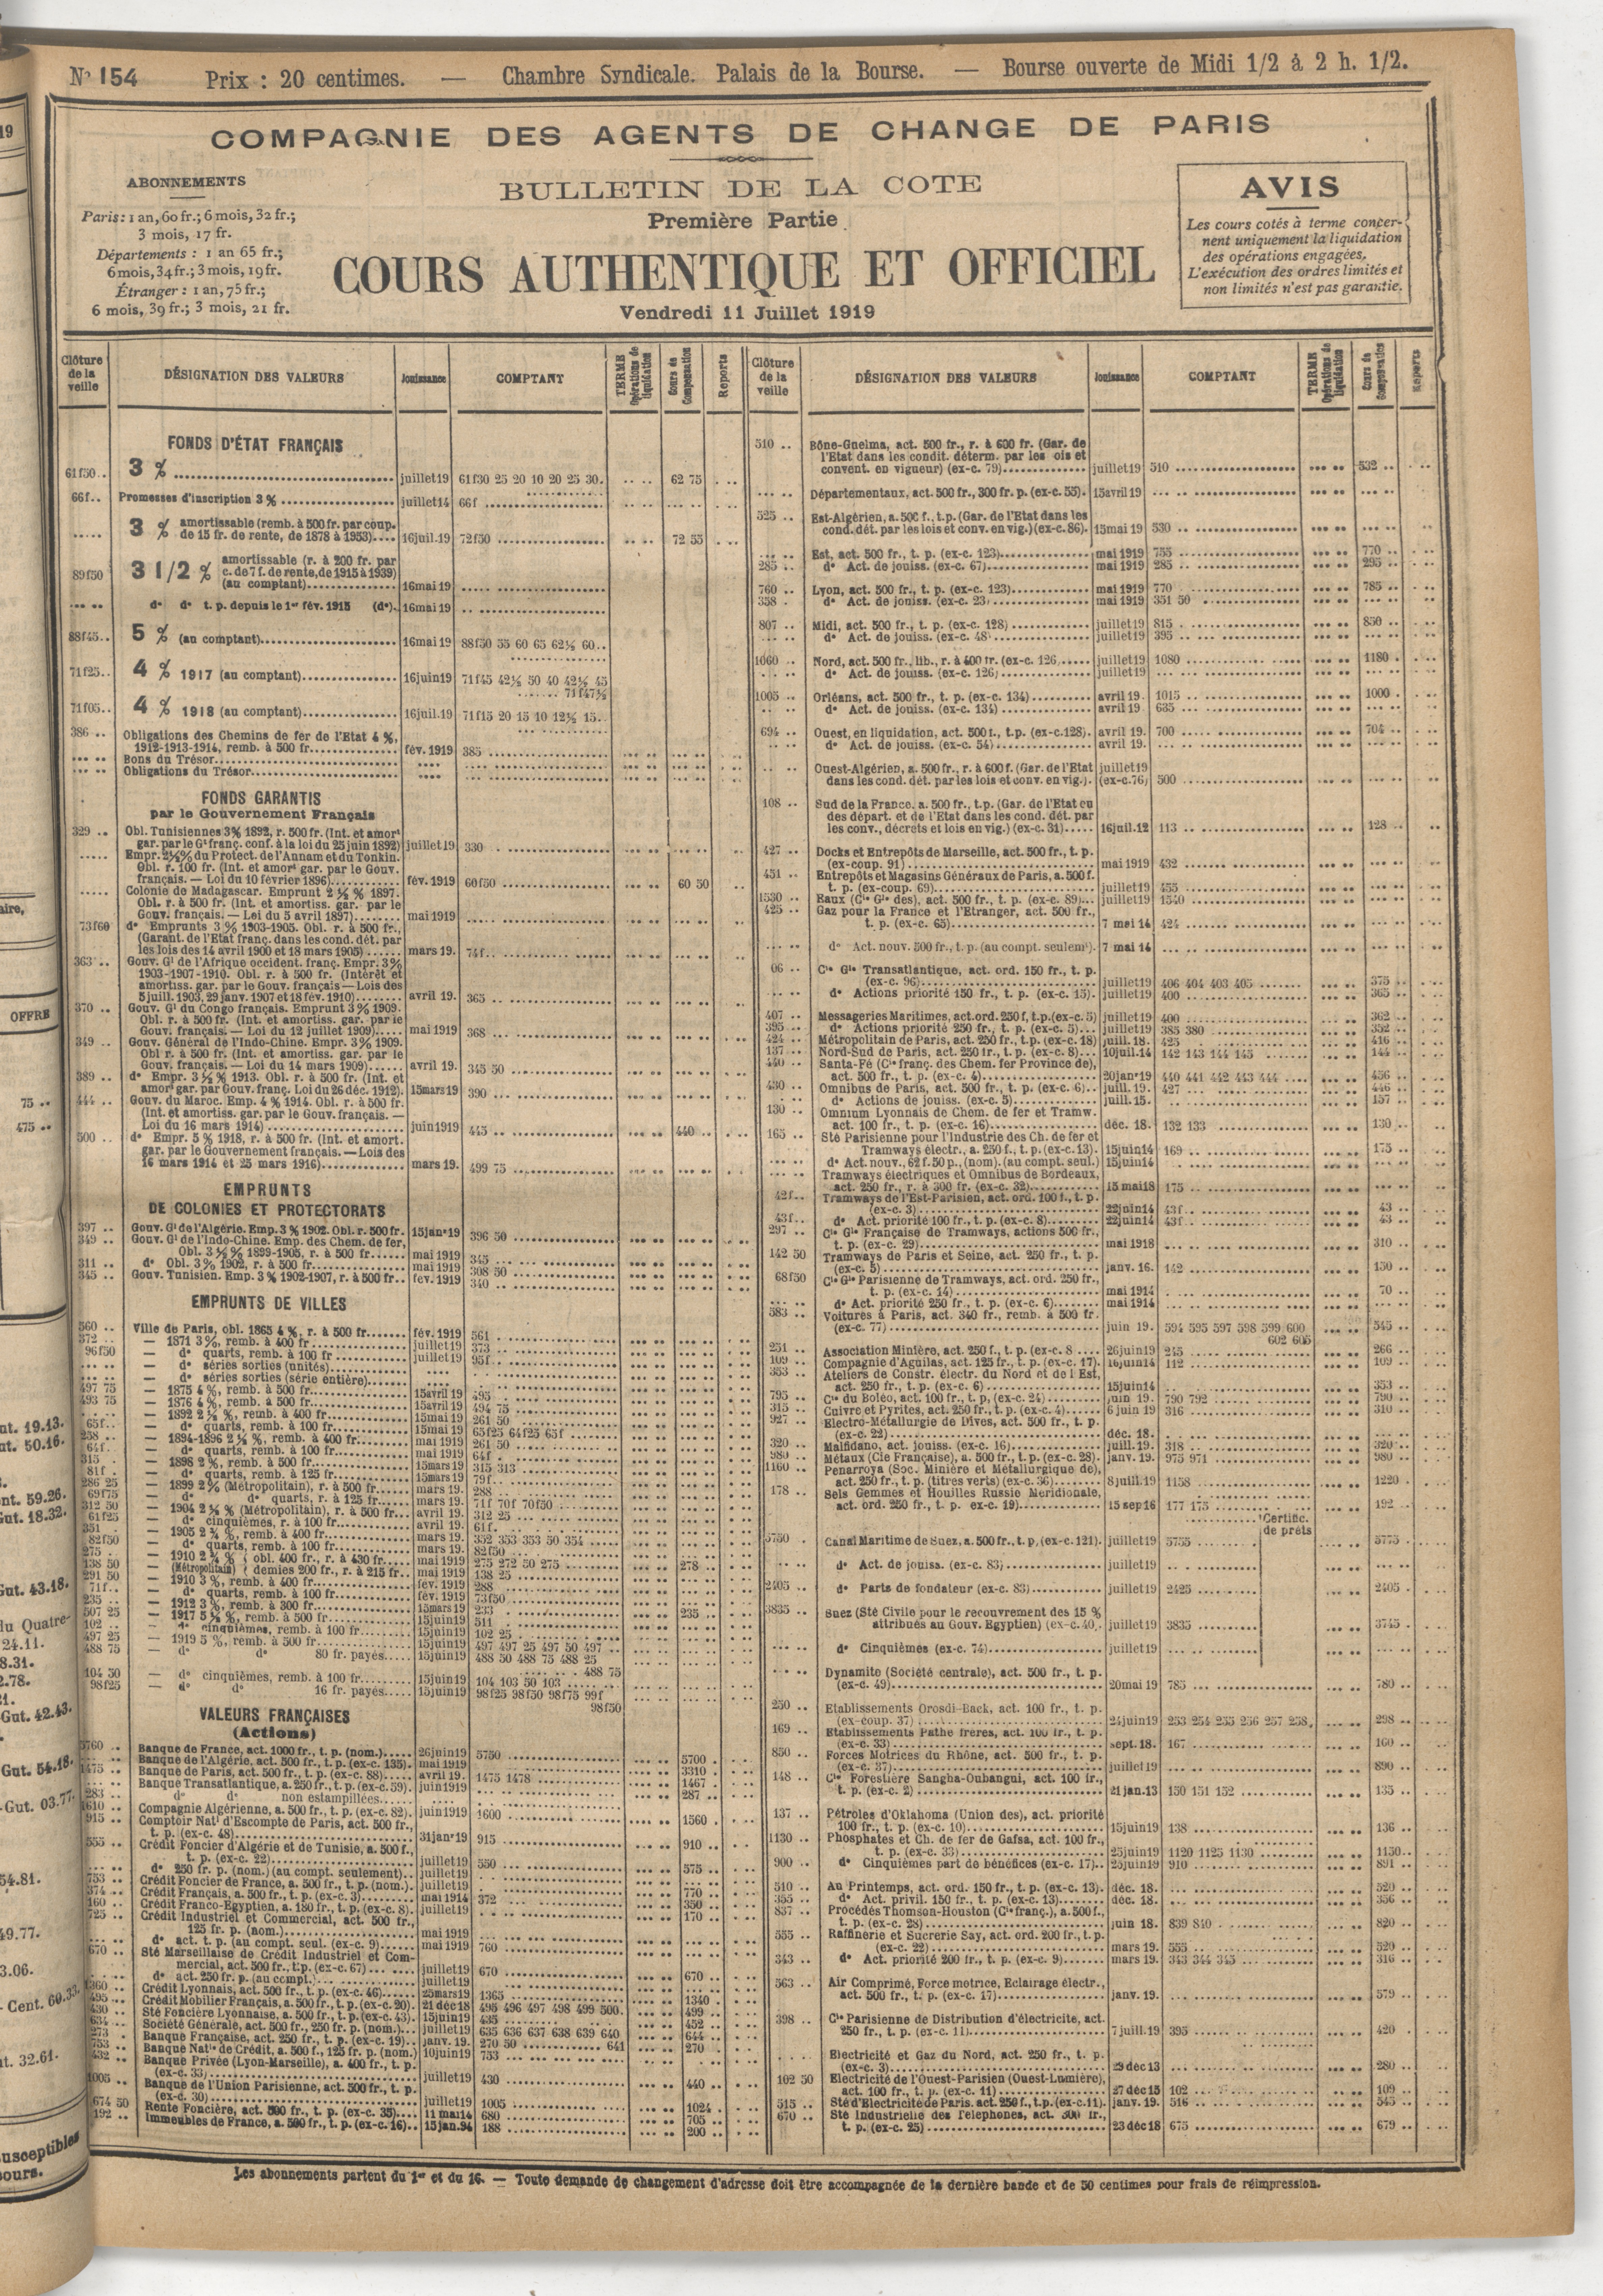 N° 154 Prix : 20 centimes. — Chambre Syndicale. Palais de la Bourse. — Bourse ouverte de Midi 1/2 à 2 h. 1/2.
COMPAGNIE DES AGENTS DE CHANGE DE PARIS
ABONNEMENTS
Paris : 1 an, 60 fr.; 6 mois, 32 fr.;
3 mois, 17 fr.
Départements : 1 an 65 fr.;
6 mois, 34 fr.; 3 mois, 19 fr.
Étranger : 1 an, 75 fr.;
6 mois, 39 fr.; 3 mois, 21 fr.
BULLETIN DE LA COTE
Première Partie
COURS AUTHENTIQUE ET OFFICIEL
Vendredi 11 Juillet 1919
AVIS
Les cours cotés à terme concer-
nent uniquement la liquidation
des opérations engagées.
L'exécution des ordres limités et
non limités n'est pas garantie.
Clôture de la veille DÉSIGNATION DES VALEURS Jouissance COMPTANT TERME Opérations de liquidation Cours de Compensation Reports
FONDS D'ÉTAT FRANÇAIS
61f50.. 3 % juillet19 61f30 25 20 10 20 25 30. 62 75
66f.. Promesses d'inscription 3 % juillet14 66f
3 % amortissable (remb. à 500 fr. par coup.
de 15 fr. de rente, de 1878 à 1953).... 16juil.19 72f50 72 55
89f50 3 1/2 % amortissable (r. à 200 fr. par
c. de 7 f. de rente, de 1915 à 1939)
(au comptant) 16mai 19
d° d° t. p. depuis le 1er fév. 1915 (d°). 16mai 19
88f45.. 5 % (au comptant) 16mai 19 88f50 55 60 65 62½ 60..
71f25.. 4 % 1917 (au comptant) 16juin19 71f45 42½ 50 40 42½ 45
71f47½
71f05.. 4 % 1918 (au comptant) 16juil.19 71f15 20 15 10 12½ 15..
386 .. Obligations des Chemins de fer de l'Etat 4 %,
1912-1913-1914, remb. à 500 fr. fév. 1919 385
Bons du Trésor
Obligations du Trésor
FONDS GARANTIS
par le Gouvernement Français
329 .. Obl. Tunisiennes 3% 1892, r. 500 fr. (Int. et amort
gar. par le Gt franç. conf. à la loi du 25 juin 1892) juillet19 330
Empr. 2½% du Protect. de l'Annam et du Tonkin.
Obl. r. 100 fr. (Int. et amort gar. par le Gouv.
français. — Loi du 10 février 1896) fév. 1919 60f50 60 50
Colonie de Madagascar. Emprunt 2 ½ % 1897.
Obl. r. à 500 fr. (Int. et amortiss. gar. par le
Gouv. français. — Loi du 5 avril 1897) mai 1919
73f60 d° Emprunts 3 % 1903-1905. Obl. r. à 500 fr.,
(Garant. de l'Etat franç. dans les cond. dét. par
les lois des 14 avril 1900 et 18 mars 1905) mars 19. 74f..
363 .. Gouv. Gl de l'Afrique occident. franç. Empr. 3%
1903-1907-1910. Obl. r. à 500 fr. (Intérêt et
amortiss. gar. par le Gouv. français — Lois des
5 juill. 1903, 29 janv. 1907 et 18 fév. 1910) avril 19. 365
370 .. Gouv. Gl du Congo français. Emprunt 3% 1909.
Obl. r. à 500 fr. (Int. et amortiss. gar. par le
Gouv. français. — Loi du 12 juillet 1909) mai 1919 368
349 .. Gouv. Général de l'Indo-Chine. Empr. 3% 1909.
Obl r. à 500 fr. (Int. et amortiss. gar. par le
Gouv. français. — Loi du 14 mars 1909) avril 19. 345 50
389 .. d° Empr. 3 ½ % 1913. Obl. r. à 500 fr. (Int. et
amort gar. par Gouv. franç. Loi du 26 déc. 1912). 15mars19 390
444 .. Gouv. du Maroc. Emp. 4% 1914. Obl. r. à 500 fr.
(Int. et amortiss. gar. par le Gouv. français. —
Loi du 16 mars 1914) juin1919 445 440
500 .. d° Empr. 5 % 1918, r. à 500 fr. (Int. et amort.
gar. par le Gouvernement français. — Lois des
16 mars 1914 et 25 mars 1916) mars 19. 499 75
EMPRUNTS
DE COLONIES ET PROTECTORATS
397 .. Gouv. Gl de l'Algérie. Emp. 3% 1902. Obl. r. 500 fr. 15janr19 396 50
349 .. Gouv. Gl de l'Indo-Chine. Emp. des Chem. de fer,
Obl. 3 ½ % 1899-1905, r. à 500 fr. mai 1919 345
311 .. d° Obl. 3 % 1902, r. à 500 fr. mai 1919 308 50
345 .. Gouv. Tunisien. Emp. 3 % 1902-1907, r. à 500 fr. fév. 1919 340
EMPRUNTS DE VILLES
560 .. Ville de Paris, obl. 1865 4 %, r. à 500 fr. fév. 1919 561
372 .. — 1871 3%, remb. à 400 fr. juillet19 373
96f50 — d° quarts, remb. à 100 fr. juillet19 95f
— d° séries sorties (unités)
— d° séries sorties (série entière)
497 75 — 1875 4 %, remb. à 500 fr. 15avril 19 495
493 75 — 1876 4 %, remb. à 500 fr. 15avril 19 494 75
— 1892 2 ½ %, remb. à 400 fr. 15mai 19 261 50
65f.. — d° quarts, remb. à 100 fr. 15mai 19 65f25 64f25 65f
258 .. — 1894-1896 2 ½ %, remb. à 400 fr. mai 1919 261 50
64f.. — d° quarts, remb. à 100 fr. mai 1919 64f
315 — 1898 2 %, remb. à 500 fr. 15mars19 315 313
81f . — d° quarts, remb. à 125 fr. 15mars19 79f
286 25 — 1899 2 % (Métropolitain), r. à 500 fr. mars 19. 288
69f75 — d° d° quarts, r. à 125 fr. mars 19. 71f 70f 70f50
312 50 — 1904 2 ½ % (Métropolitain), r. à 500 fr. avril 19. 312 25
61f25 — d° cinquièmes, r. à 100 fr. avril 19. 61f
351 — 1905 2 ¾ %, remb. à 400 fr. mars 19. 352 353 353 50 354
82f50 — d° quarts, remb. à 100 fr. mars 19. 82f50
275 — 1910 2 ¾ % { obl. 400 fr., r. à 430 fr. mai 1919 275 272 50 275 278
138 50 — (Métropolitain) { demies 200 fr., r. à 215 fr. mai 1919 138 25
291 50 — 1910 3 %, remb. à 400 fr. fév. 1919 288
71f.. — d° quarts, remb. à 100 fr. fév. 1919 73f50
235 .. — 1912 3 %, remb. à 300 fr. 15mars19 233 235
507 25 — 1917 5 ½ %, remb. à 500 fr. 15juin19 511
102 .. — d° cinquièmes, remb. à 100 fr. 15juin19 102 25
497 25 — 1919 5 %, remb. à 500 fr. 15juin19 497 497 25 497 50 497
488 75 — d° d° 80 fr. payés 15juin19 488 50 488 75 488 25
488 75
104 50 — d° cinquièmes, remb. à 100 fr. 15juin19 104 103 50 103
98f25 — d° d° 16 fr. payés 15juin19 98f25 98f50 98f75 99f
98f50
VALEURS FRANÇAISES
(Actions)
5760 .. Banque de France, act. 1000 fr., t. p. (nom.) 26juin19 5750 5700
Banque de l'Algérie, act. 500 fr., t. p. (ex-c. 135). mai 1919 3310
1475 .. Banque de Paris, act. 500 fr., t. p. (ex-c. 88) avril 19. 1475 1478 1467
Banque Transatlantique, a. 250 fr., t. p. (ex-c. 59). juin1919 287
283 .. d° d° non estampillées
1610 .. Compagnie Algérienne, a. 500 fr., t. p. (ex-c. 82). juin1919 1600 1560
915 .. Comptoir Natl d'Escompte de Paris, act. 500 fr.,
t. p. (ex-c. 48) 31janr19 915 910
555 .. Crédit Foncier d'Algérie et de Tunisie, a. 500 f.,
t. p. (ex-c. 22) juillet19 550 575
d° 250 fr. p. (nom.) (au compt. seulement) juillet19
753 .. Crédit Foncier de France, a. 500 fr., t. p. (nom.). juillet19 770
374 .. Crédit Français, a. 500 fr., t. p. (ex-c. 3) mai 1914 372 350
160 .. Crédit Franco-Egyptien, a. 180 fr., t. p. (ex-c. 8). juillet19 170
725 .. Crédit Industriel et Commercial, act. 500 fr.,
125 fr. p. (nom.) mai 1919
d° act. t. p. (au compt. seul. (ex-c. 9) mai 1919 760
670 .. Sté Marseillaise de Crédit Industriel et Com-
mercial, act. 500 fr., t. p. (ex-c. 67) juillet19 670 670
d° act. 250 fr. p. (au compt.) juillet19
1360 .. Crédit Lyonnais, act. 500 fr., t. p. (ex-c. 46) 25mars19 1365 1340
495 .. Crédit Mobilier Français, a. 500 fr., t. p. (ex-c. 20). 21 déc18 495 496 497 498 499 500. 499
430 .. Sté Foncière Lyonnaise, a. 500 fr., t. p. (ex-c. 43). 15juin19 435 452
634 .. Société Générale, act. 500 fr., 250 fr. p. (nom.) juillet19 635 636 637 638 639 640 644
641
273 .. Banque Française, act. 250 fr., t. p. (ex-c. 19) janv. 19. 270 50 270
753 .. Banque Natle de Crédit, a. 500 f., 125 fr. p. (nom.) 10juin19 753
432 .. Banque Privée (Lyon-Marseille), a. 400 fr., t. p.
(ex-c. 33) juillet19 430 440
1005 .. Banque de l'Union Parisienne, act. 500 fr., t. p.
(ex-c. 30) juillet19 1005 1024
674 50 Rente Foncière, act. 500 fr., t. p. (ex-c. 35) 11 mai14 680 705
192 .. Immeubles de France, a. 500 fr., t. p. (ex-c. 16). 15jan.94 188 200
Clôture de la veille DÉSIGNATION DES VALEURS Jouissance COMPTANT TERME Opérations de liquidation Cours de Compensation Reports
510 .. Bône-Guelma, act. 500 fr., r. à 600 fr. (Gar. de
l'Etat dans les condit. déterm. par les ois et
convent. en vigueur) (ex-c. 79) juillet19 510 532
Départementaux, act. 500 fr., 300 fr. p. (ex-c. 55). 15avril19
525 .. Est-Algérien, a. 500 f., t. p. (Gar. de l'Etat dans les
cond. dét. par les lois et conv. en vig.) (ex-c. 86). 15mai 19 530
Est, act. 500 fr., t. p. (ex-c. 123) mai 1919 755 770
285 .. d° Act. de jouiss. (ex-c. 67) mai 1919 285 295
760 .. Lyon, act. 500 fr., t. p. (ex-c. 123) mai 1919 770 785
358 . d° Act. de jouiss. (ex-c. 23) mai 1919 351 50
807 .. Midi, act. 500 fr., t. p. (ex-c. 128) juillet19 815 850
d° Act. de jouiss. (ex-c. 48) juillet19 395
1060 .. Nord, act. 500 fr., lib., r. à 400 fr. (ex-c. 126) juillet19 1080 1180
d° Act. de jouiss. (ex-c. 126) juillet19
1005 .. Orléans, act. 500 fr., t. p. (ex-c. 134) avril 19. 1015 1000
d° Act. de jouiss. (ex-c. 134) avril 19. 635
694 .. Ouest, en liquidation, act. 500 f., t.p. (ex-c.128). avril 19. 700 704
d° Act. de jouiss. (ex-c. 54) avril 19.
Ouest-Algérien, a. 500 fr., r. à 600 f. (Gar. de l'Etat juillet19
dans les cond. dét. par les lois et conv. en vig.). (ex-c.76) 500
108 .. Sud de la France, a. 500 fr., t.p. (Gar. de l'Etat ou
des départ. et de l'Etat dans les cond. dét. par
les conv., décrets et lois en vig.) (ex-c. 31) 16juil.12 113 128
427 .. Docks et Entrepôts de Marseille, act. 500 fr., t. p.
(ex-coup. 91) mai 1919 432
451 .. Entrepôts et Magasins Généraux de Paris, a. 500 f.
t. p. (ex-coup. 69) juillet19 455
1530 .. Eaux (Cie Gle des), act. 500 fr., t. p. (ex-c. 89) juillet19 1540
425 .. Gaz pour la France et l'Etranger, act. 500 fr.,
t. p. (ex-c. 65) 7 mai 14 424
d° Act. nouv. 500 fr., t. p. (au compt. seulemt). 7 mai 14
06 .. Cie Gle Transatlantique, act. ord. 150 fr., t. p.
(ex-c. 96) juillet19 406 404 403 405 375
d° Actions priorité 150 fr., t. p. (ex-c. 15). juillet19 400 365
407 .. Messageries Maritimes, act. ord. 250 f, t.p. (ex-c. 5) juillet19 400 362
395 .. d° Actions priorité 250 fr., t. p. (ex-c. 5) juillet19 385 380 352
424 .. Métropolitain de Paris, act. 250 fr., t. p. (ex-c. 18) juill. 18. 425 416
137 .. Nord-Sud de Paris, act. 250 fr., t. p. (ex-c. 8) 10juil.14 142 143 144 145 144
440 .. Santa-Fé (Cie franç. des Chem. fer Province de),
act. 500 fr., t. p. (ex-c. 4) 20janr19 440 441 442 443 444 456
430 .. Omnibus de Paris, act. 500 fr., t. p. (ex-c. 6) juill. 19. 427 446
d° Actions de jouiss. (ex-c. 5) juill. 15. 157
130 .. Omnium Lyonnais de Chem. de fer et Tramw.
act. 100 fr., t. p. (ex-c. 16) déc. 18. 132 133 130
165 .. Sté Parisienne pour l'Industrie des Ch. de fer et
Tramways électr., a. 250 f., t. p. (ex-c. 13). 15juin14 169 175
d° Act. nouv., 62 f. 50 p., (nom). (au compt. seul.) 15juin14
Tramways électriques et Omnibus de Bordeaux,
act. 250 fr., r. à 300 fr. (ex-c. 32) 15 mai18 175
42f.. Tramways de l'Est-Parisien, act. ord. 100 f., t. p.
(ex-c. 3) 22juin14 43f 43
43f.. d° Act. priorité 100 fr., t. p. (ex-c. 8) 22juin14 43f 43
297 .. Cie Gle Française de Tramways, actions 500 fr.,
t. p. (ex-c. 29) mai 1918 310
142 50 Tramways de Paris et Seine, act. 250 fr., t. p.
(ex-c. 5) janv. 16. 142 150
68f50 Cie Gle Parisienne de Tramways, act. ord. 250 fr.,
t. p. (ex-c. 14) mai 1914 70
d° Act. priorité 250 fr., t. p. (ex-c. 6) mai 1914
583 .. Voitures à Paris, act. 340 fr., remb. à 500 fr.
(ex-c. 77) juin 19. 594 595 597 598 599 600 545
602 606
251 .. Association Minière, act. 250 f., t. p. (ex-c. 8 26juin19 245 266
109 .. Compagnie d'Aguilas, act. 125 fr., t. p. (ex-c. 17). 16juin14 112 109
353 .. Ateliers de Constr. électr. du Nord et de l Est,
act. 250 fr., t. p. (ex-c. 6) 15juin14 353
795 .. Cie du Boléo, act. 100 fr., t. p. (ex-c. 24) juin 19. 790 792 790
315 .. Cuivre et Pyrites, act. 250 fr., t. p. (ex-c. 4) 6 juin 19 316 310
927 .. Electro-Métallurgie de Dives, act. 500 fr., t. p.
(ex-c. 22) déc. 18.
320 .. Malfidano, act. jouiss. (ex-c. 16) juill. 19. 318 320
980 .. Métaux (Cie Française), a. 500 fr., t. p. (ex-c. 28). janv. 19. 975 971 980
1160 .. Penarroya (Soc. Minière et Métallurgique de),
act. 250 fr., t. p. (titres verts) (ex-c. 36) 8 juill.19 1158 1220
178 .. Sels Gemmes et Houilles Russie Méridionale,
act. ord. 250 fr., t. p. ex-c. 19) 15 sep16 177 175 192
Certific.
de prêts
5750 Canal Maritime de Suez, a. 500 fr., t. p. (ex-c. 121). juillet19 5755 5775
d° Act. de jouiss. (ex-c. 83) juillet19
2405 .. d° Parts de fondateur (ex-c. 83) juillet19 2425 2405
3835 .. Suez (Sté Civile pour le recouvrement des 15 %
attribués au Gouv. Egyptien) (ex-c. 40. juillet19 3835 3745
d° Cinquièmes (ex-c. 74) juillet19
Dynamite (Société centrale), act. 500 fr., t. p.
(ex-c. 49) 20mai 19 785 780
250 .. Etablissements Orosdi-Back, act. 100 fr., t. p.
(ex-coup. 37) 24juin19 253 254 255 256 257 258, 298
169 .. Etablissements Pathé frères, act. 100 fr., t. p.
(ex-c. 33) sept. 18. 167 160
850 .. Forces Motrices du Rhône, act. 500 fr., t. p.
(ex-c. 37) juillet19 890
148 .. Cie Forestière Sangha-Oubangui, act. 100 fr.,
t. p. (ex-c. 2) 21 jan.13 150 151 152 135
137 .. Pétroles d'Oklahoma (Union des), act. priorité
100 fr., t. p. (ex-c. 10) 15juin19 138 136
1130 .. Phosphates et Ch. de fer de Gafsa, act. 100 fr.,
t. p. (ex-c. 33) 25juin19 1120 1125 1130 1150
900 .. d° Cinquièmes part de bénéfices (ex-c. 17) 25juin19 910 891
510 .. Au Printemps, act. ord. 150 fr., t. p. (ex-c. 13). déc. 18. 520
355 .. d° Act. privil. 150 fr., t. p. (ex-c. 13) déc. 18. 356
837 .. Procédés Thomson-Houston (Cie franç.), a. 500 f.,
t. p. (ex-c. 28) juin 18. 839 840 820
555 .. Raffinerie et Sucrerie Say, act. ord. 200 fr., t. p.
(ex-c. 22) mars 19. 555 520
343 .. d° Act. priorité 200 fr., t. p. (ex-c. 9) mars 19. 343 344 345 316
563 .. Air Comprimé, Force motrice, Eclairage électr.,
act. 500 fr., t. p. (ex-c. 17) janv. 19. 579
398 .. Cie Parisienne de Distribution d'électricité, act.
250 fr., t. p. (ex-c. 11) 7 juill.19 395 420
Electricité et Gaz du Nord, act. 250 fr., t. p.
(ex-c. 3) 23 déc13 280
102 50 Electricité de l'Ouest-Parisien (Ouest-Lumière),
act. 100 fr., t. p. (ex-c. 11) 27 déc15 102 109
515 .. Sté d'Electricité de Paris, act. 250 f., t.p. (ex-c.11). janv. 19. 516 545
670 .. Sté Industrielle des Téléphones, act. 300 fr.,
t. p. (ex-c. 25) 23 déc18 675 679
Les abonnements partent du 1er et du 16. — Toute demande de changement d'adresse doit être accompagnée de la dernière bande et de 50 centimes pour frais de réimpression.